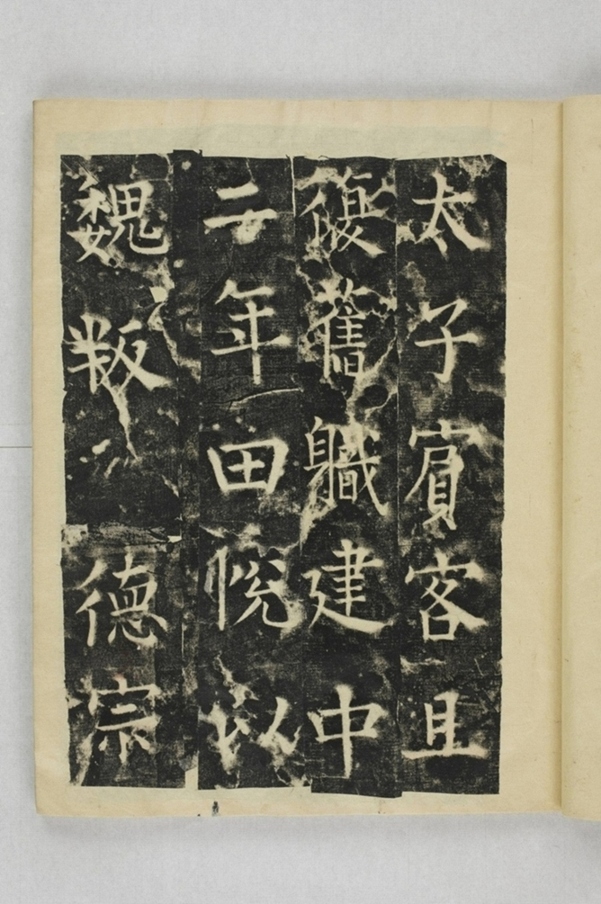 太子賓客且
復舊職建中
二年田悅以
魏叛德宗